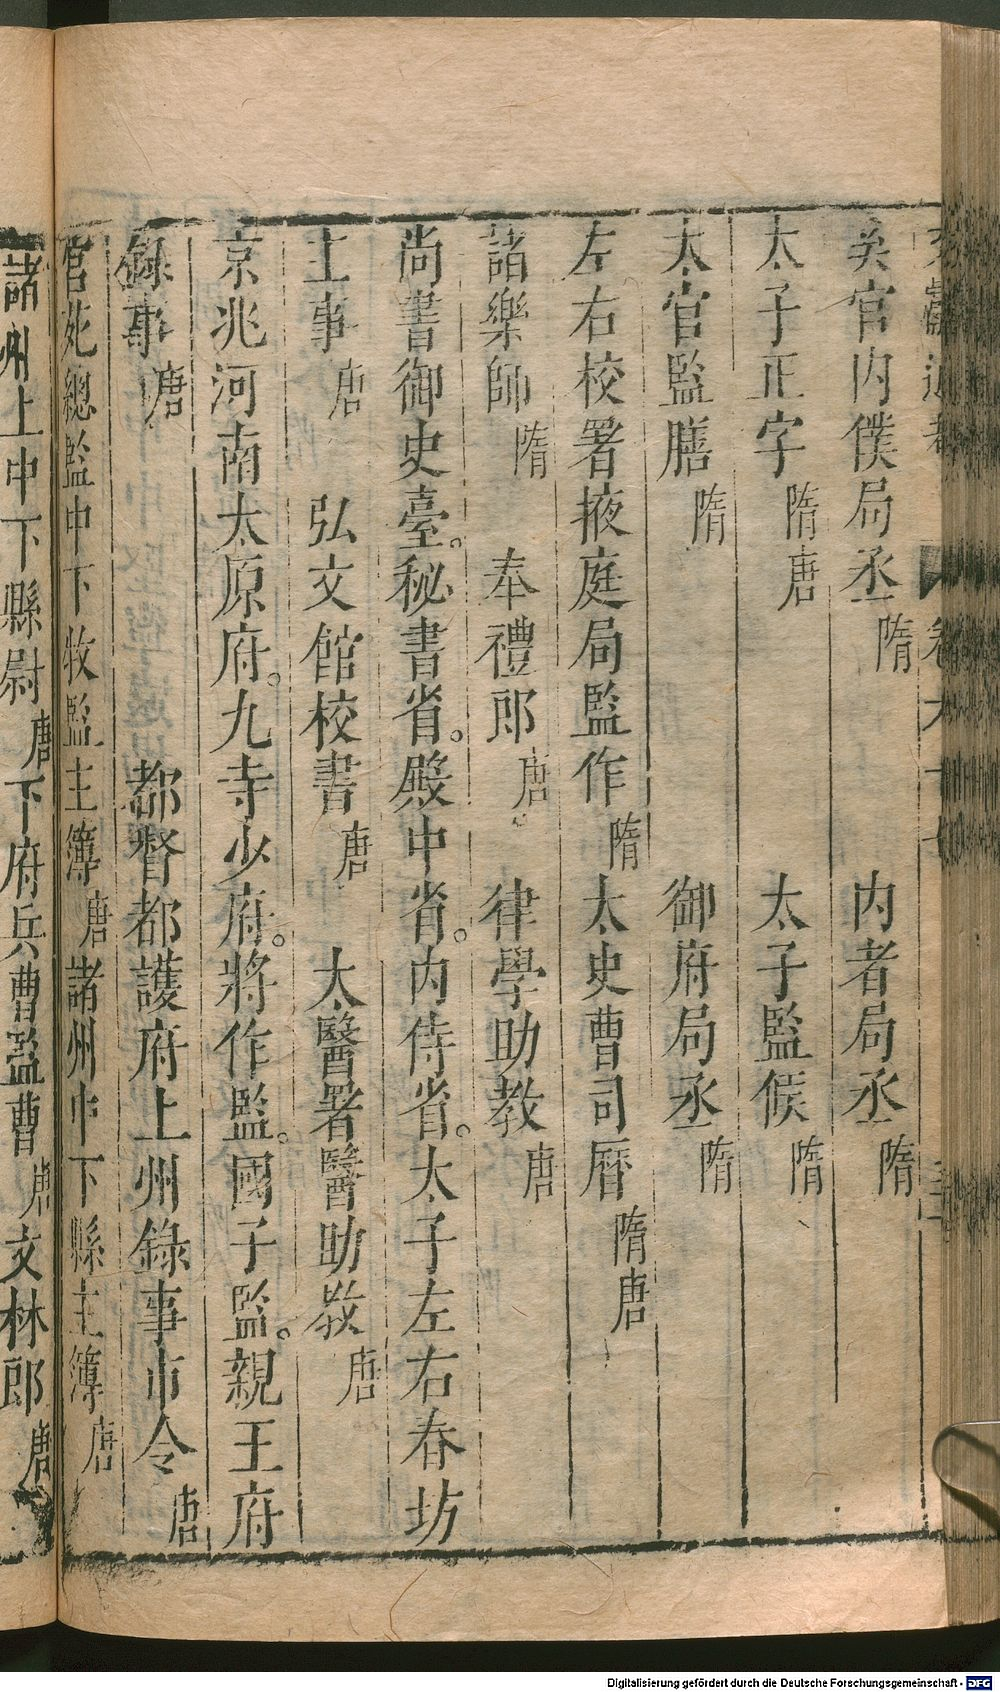 奚官內僕局丞 隋 內者局丞 隋
太子正字 隋唐 太子監候 隋
太官監膳 隋 御府局丞 隋
左右校署掖庭局監作 隋 太史曹司曆 隋唐
諸樂師 隋 奉禮郎 唐 律學助敎 唐
尚書御史臺。秘書省。殿中省。內侍省。太子左右春坊
主事 唐 弘文館校書 唐 太醫署醫助敎 唐
京兆河南太原府。九寺少府。將作監。國子監。親王府
錄事 唐 都督都護府上州錄事市令 唐
宮苑總監中下牧監主簿 唐 諸州中下縣主簿 唐
諸州上中下縣尉 唐 下府兵曹 唐 文林郎 唐
Digitalisierung gefördert durch die Deutsche Forschungsgemeinschaft - DFG